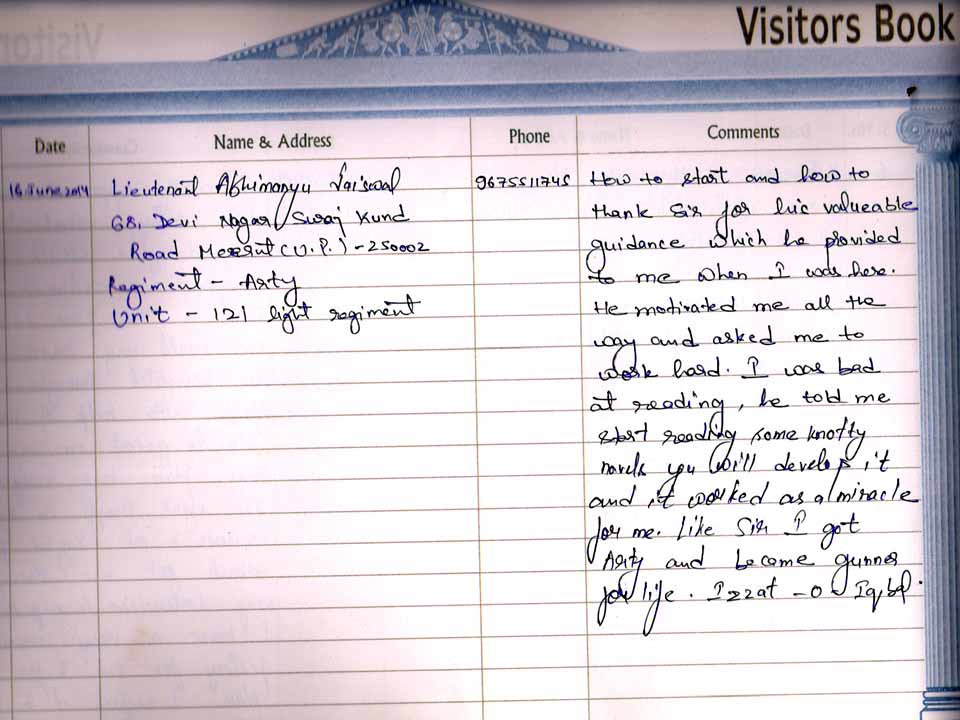 Visitors Book
Date
Name & Address
Phone
Comments
16 June 2014
Lieutenant Abhimanyu Jaiswal
68, Devi Nagar, Suraj Kund
Road Meerut (U.P.) - 250002
Regiment - Arty
Unit - 121 light regiment
9675511745
How to start and how to
thank Sir for his valueable
guidance which he provided
to me when I was here.
He motivated me all the
way and asked me to
work hard. I was bad
at reading, he told me
start reading some knotty
novels you will develop it
and it worked as a miracle
for me. Like Sir I got
Arty and become gunner
for life. Izzat -o Iqbal.